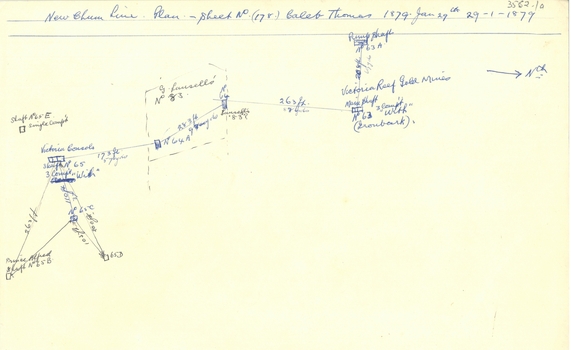 3562/10
New Chum Line. Plan - Sheet No. (178) Caleb Thomas 1879. Jan 29th 29-1-1879
Pump Shaft
No 63A
Victoria Reef Gold Mines
Noth
Main Shaft
3 Compt
"With"
No 63
(Ironbark).
G. Lansell's
No 83
No 64
Lansell's
263 ft.
283 ft
No 64A
Shaft No 65 E
Single Compt
Victoria Consols
Shaft No 65
3 Compt
"With"
193 ft
263 ft
No 65C
65D
Prince Alfred
Shaft No 65B